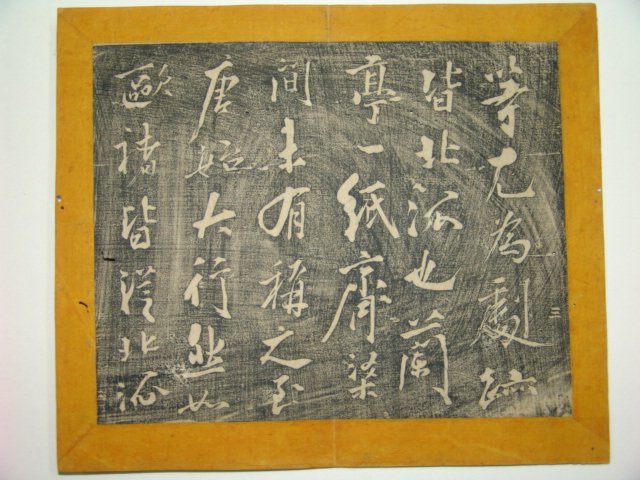 三
等尤為劇跡
皆北派也蘭
亭一紙齊梁
間未有稱之至
唐始大行然如
歐褚皆從北派